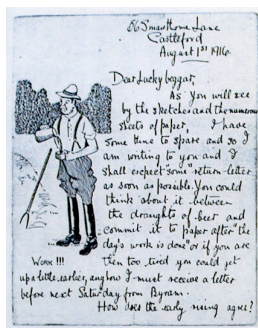 56 Smawthorne Lane
Castleford
August 1st 1916.
Dear Lucky beggar,
As You will see
by the sketches and the numerous
sheets of paper, I have
some time to spare and so I
am writing to you and I
shall expect "some" return-letter
as soon as possible. You could
think about it between
the draughts of beer and
commit it to paper after "the
day's work is done" or if you are
then too tired you could get
up a little earlier, anyhow I must receive a letter
before next Saturday from Byram.
How does the early rising agree?
WORK !!!